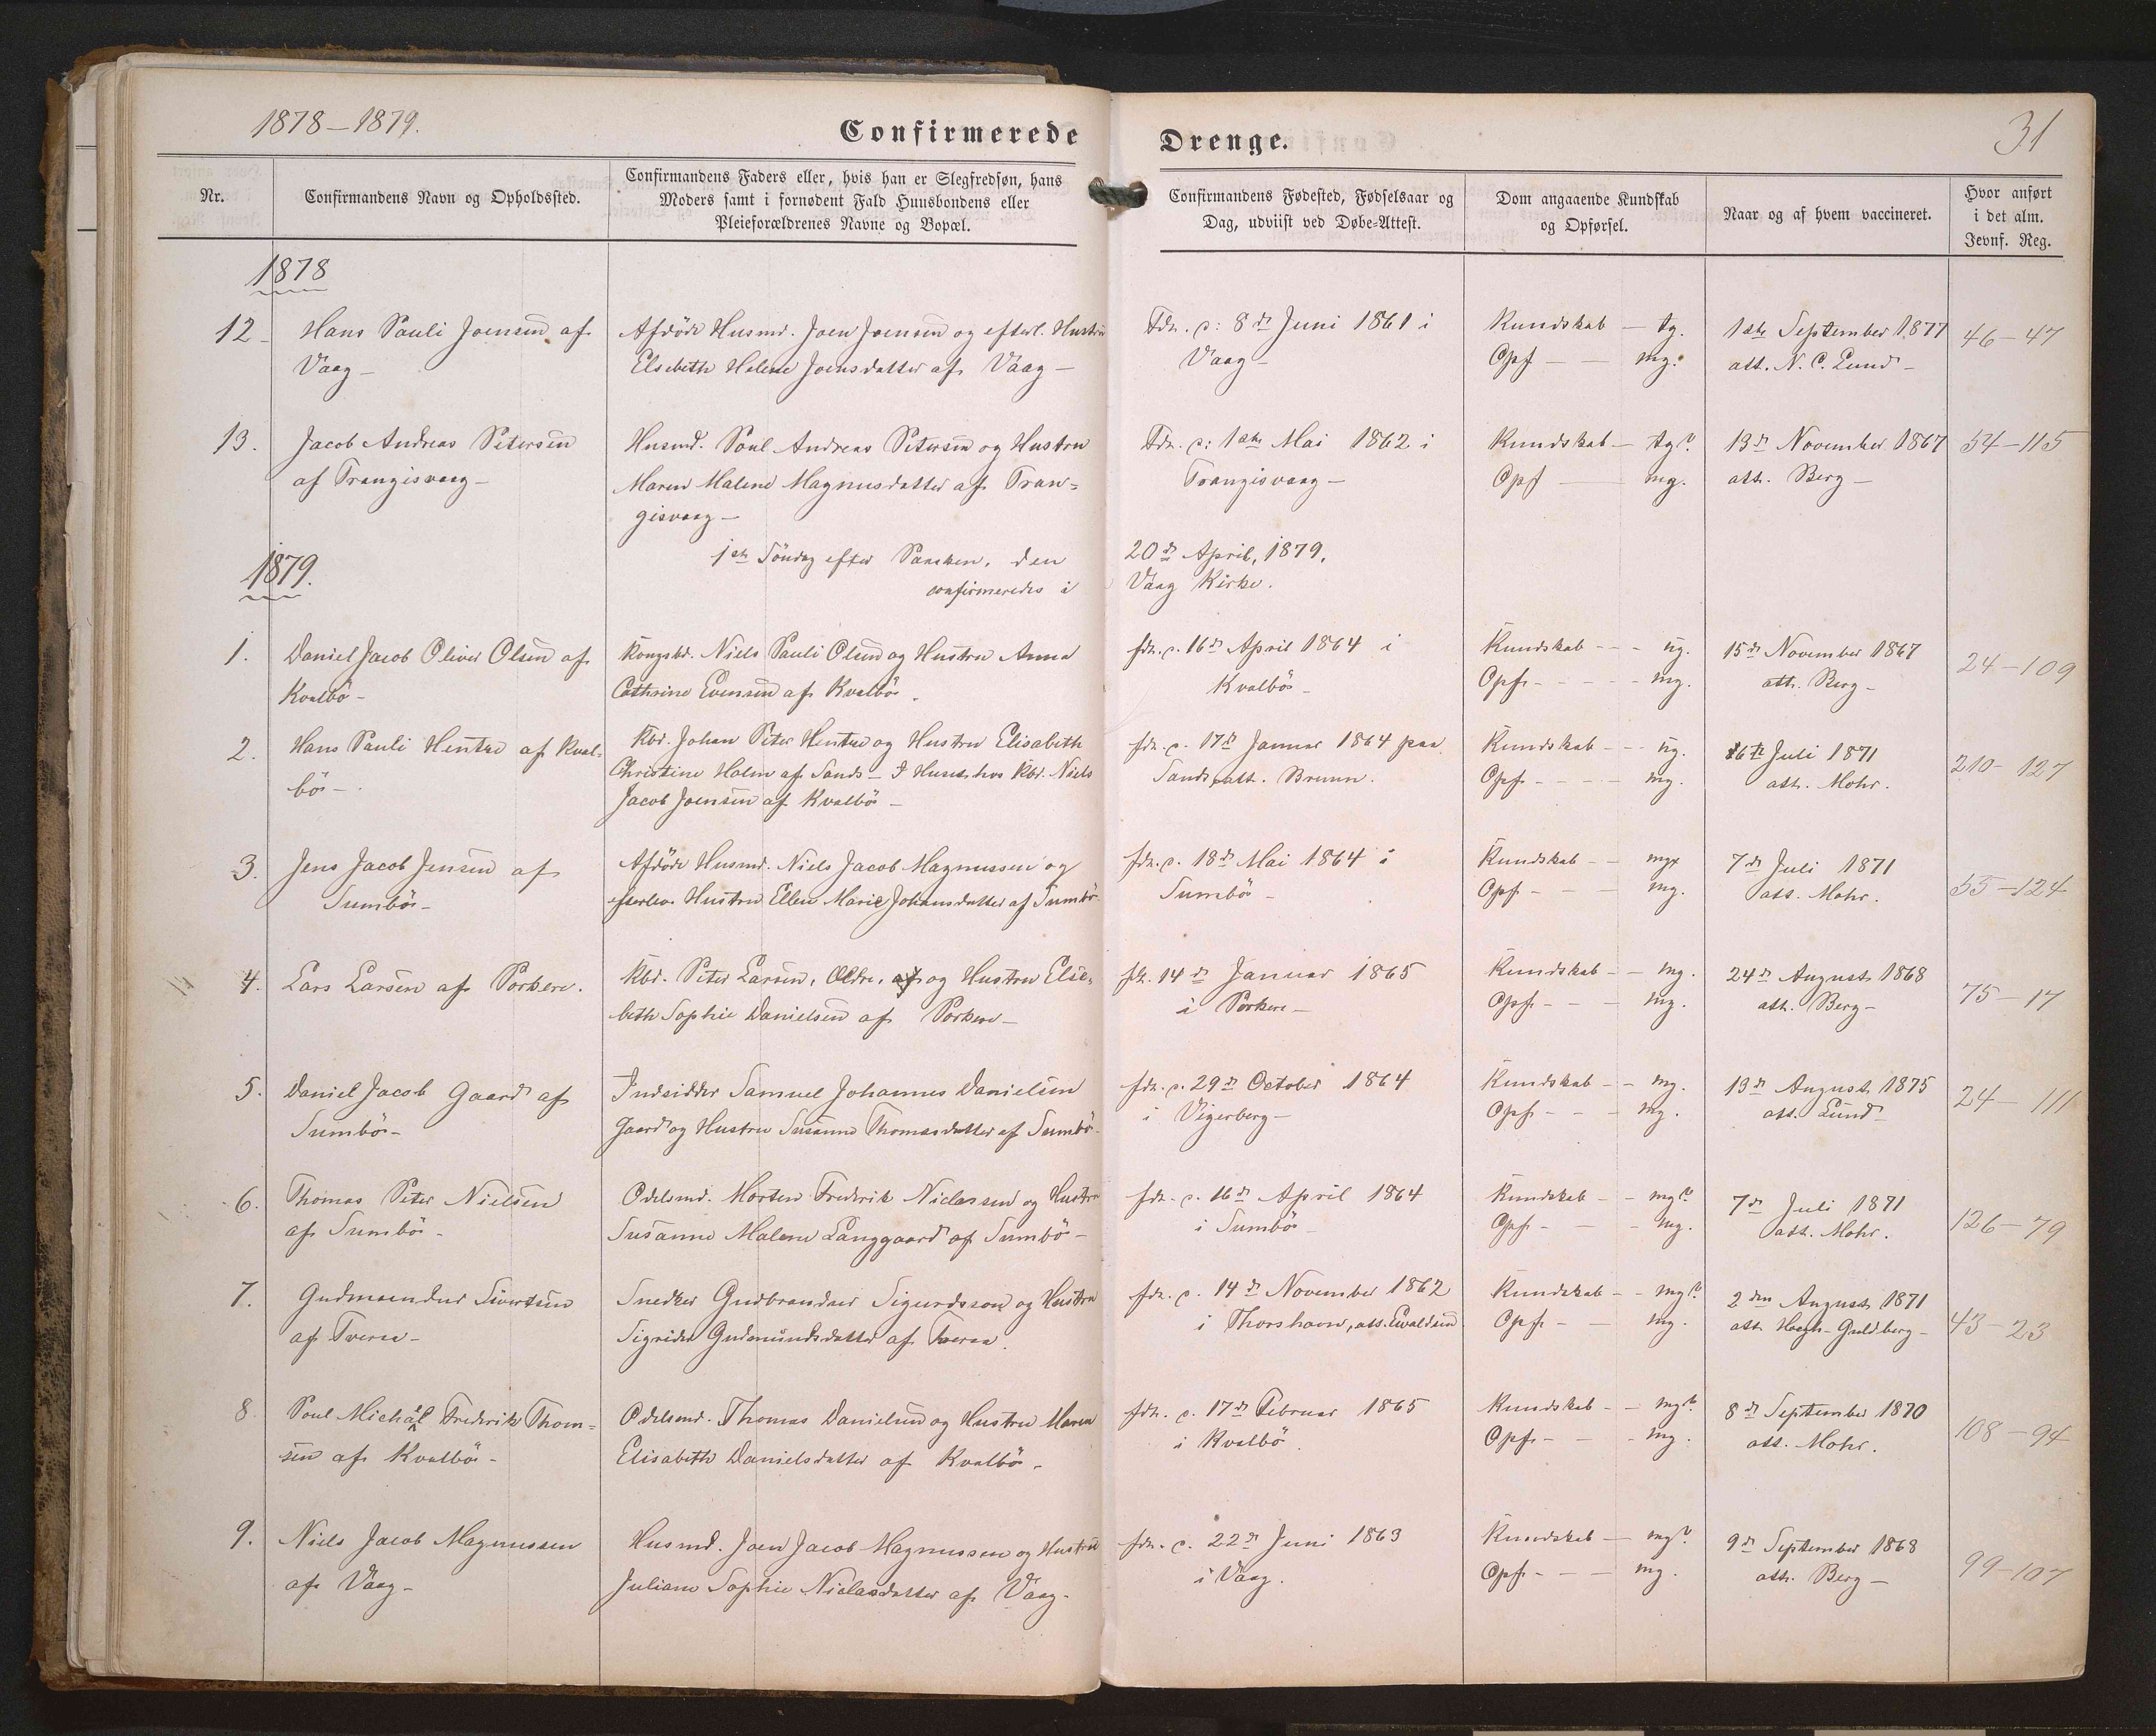 1878–1879.
Confirmerede Drenge.
31
Nr.
Confirmandens Navn og Opholdssted.
Confirmandens Faders eller, hvis han er Slegfredsøn, hans
Moders samt i fornødent Fald Huusbondens eller
Pleieforældrenes Navne og Bopæl.
Confirmandens Fødested, Fødselsaar og
Dag, udviist ved Døbe-Attest.
Dom angaaende Kundskab
og Opførsel.
Naar og af hvem vaccineret.
Hvor anført
i det alm.
Jevnf. Reg.
1878
12
Hans Pauli Joensen af
Vaag –
Afdöde Husmd. Joen Joensen og efterl. Hustru
Elsebeth Helene Joensdatter af Vaag –
Fdn. c: 8de Juni 1861 i
Vaag –
Kundskab – tg.
Opf – – mg.
1ste September 1877
att. N. C. Lund –
46–47
13.
Jacob Andreas Petersen
af Trangisvaag –
Husmd. Poul Andreas Petersen og Hustru
Maren Malene Magnusdatter af Tran=
gisvaag –
Fdn. c: 1ste Mai 1862 i
Trangisvaag –
Kundskab – tg?
Opf – mg.
13de November 1867
att. Berg –
54–115
1879.
1ste Söndag efter Paasken, den 20de April, 1879.
confirmeredes i Vaag Kirke.
1.
Daniel Jacob Oliver Olsen af
Kvalbö –
Kongsbd. Niels Pauli Olsen og Hustru Anna
Cathrine Evensen af Kvalbö.
fdn. c. 16de April 1864 i
Kvalbö –
Kundskab – – – ug.
Opf. – – – – mg.
15de November 1867
att. Berg –
24–109
2.
Hans Pauli Hentze af Kval=
bö –
Kbd. Johan Peter Hentze og Hustru Elisabeth
Christine Holm af Sands – I Huset hos Kbd. Niels
Jacob Joensen af Kvalbö –
fdn. c. 17de Januar 1864 paa
Sand, att. Bruun.
Kundskab – – – ug.
Opf. – – – mg.
16de Juli 1871
att. Mohr.
210–127
3.
Jens Jacob Jensen af
Sumbö –
Afdöde Husmd. Niels Jacob Magnussen og
efterlev. Hustru Ellen Marie Johansdatter af Sumbö.
fdn. c. 18de Mai 1864 i
Sumbö –
Kundskab – – mgx
Opf – – – mg.
7de Juli 1871
att. Mohr.
55–124
4.
Lars Larsen af Porkere.
Kbd. Peter Larsen, Ældre, og Hustru Else=
beth Sophie Danielsen af Porkere –
14de Januar 1865
i Porkere –
Kundskab – – mg.
Opf. – – – mg.
24de August 1868
att. Berg –
75–17
5.
Daniel Jacob Gaard af
Sumbö –
Indsidder Samuel Johannes Danielsen
Gaard og Hustru Susanne Thomasdatter af Sumbö.
fdn. c. 29de October 1864
i Vigerberg –
Kundskab – – mg.
Opf – – – mg.
13de August 1875
att. Lund
24–111
6.
Thomas Peter Nielsen
af Sumbö –
Odelsmd. Morten Frederik Niclassen og Hustru
Susanne Malene Langgaard af Sumbö –
fdn. c. 16de April 1864
i Sumbö –
Kundskab – – mg?
Opf – – – mg.
7de Juli 1871
att. Mohr.
126–79
7.
Gudmundur Sivertsen
af Tveraa –
Snedker Gudbrandur Sigurdsson og Hustru
Sigridur Gudmundsdatter af Tveraa.
fdn. c. 14de November 1862
i Thorshavn, att. Evaldsen
Kundskab – – mg?
Opf. – – mg.
2den August 1871
att. Høegh-Guldberg –
43–23
8.
Poul Michael Frederik Thom=
sen af Kvalbö –
Odelsmd. Thomas Danielsen og Hustru Maren
Elisabeth Danielsdatter af Kvalbö –
fdn. c. 17de Februar 1865
i Kvalbö.
Kundskab – – mg?
Opf. – – – mg.
8de September 1870
att. Mohr.
108–94
9.
Niels Jacob Magnussen
af Vaag –
Husmd. Joen Jacob Magnussen og Hustru
Juliane Sophie Niclasdatter af Vaag –
fdn. c. 22de Juni 1863
i Vaag.
Kundskab – mg?
Opf. – – – mg.
9de September 1868
att. Berg –
99–107